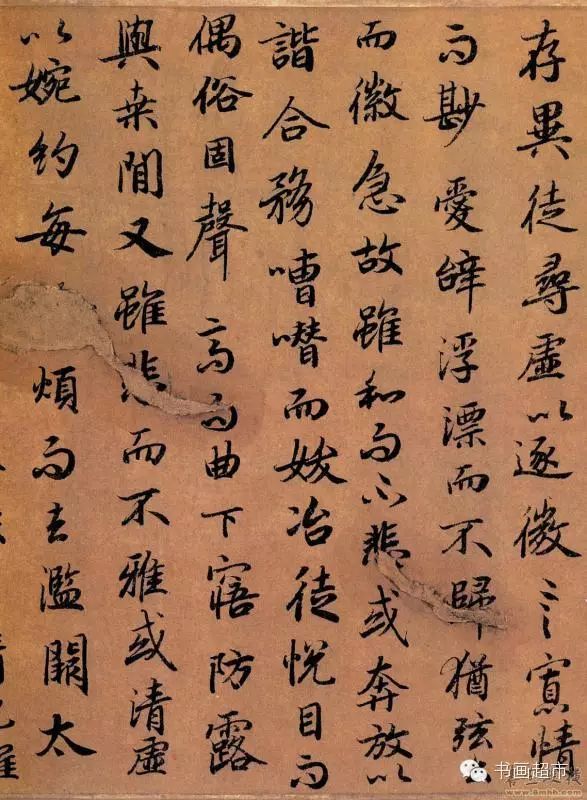 存異徒尋虛以逐微言寡情
而尠愛辝浮漂而不歸猶弦
而徽急故雖和而不悲或奔放以
諧合務嘈囋而妖冶徒悅目而
偶俗固聲高而曲下寤防露
與桒閒又雖悲而不雅或清虛
以婉約每煩而去濫闕太
书画超市